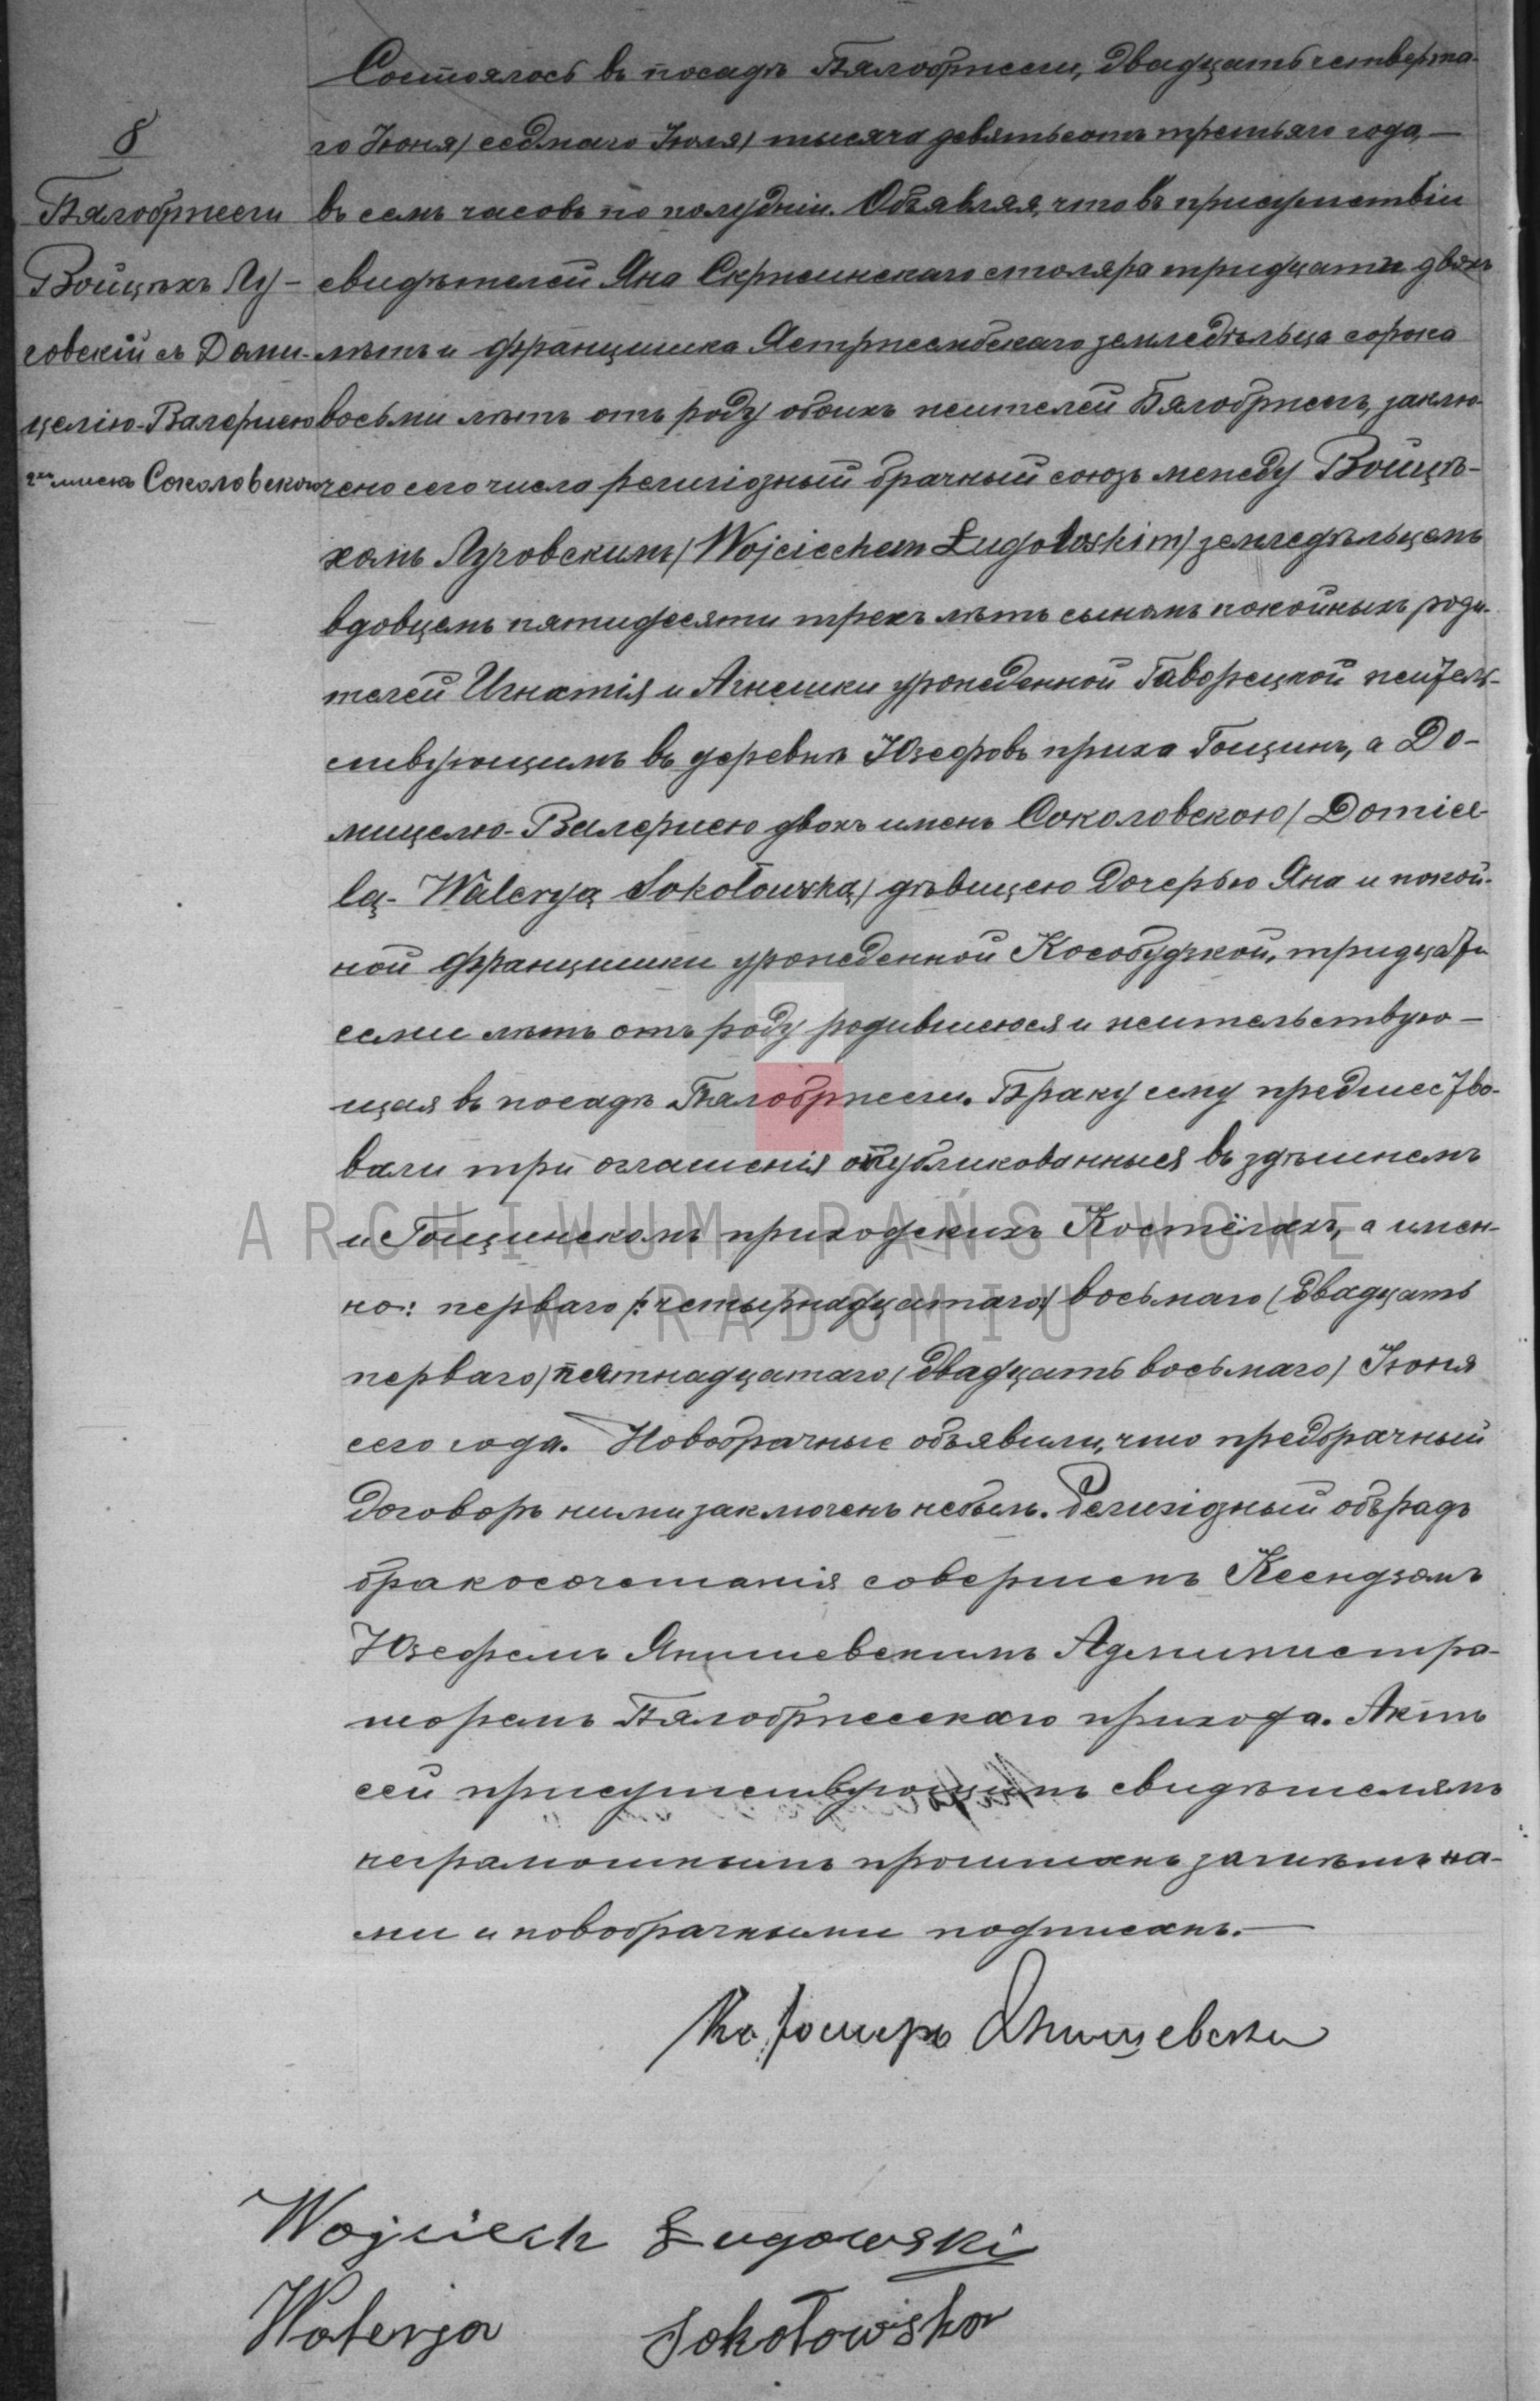 8
Бялобржеги
Войцѣхъ Лу-
говскій съ Доми-
целію-Валеріею
2хъ именъ Соколовскою
Состоялось въ посадѣ Бялобржеги, двадцать четверта-
го Іюня (седмаго Іюля) тысяча девятьсотъ третьяго года, —
въ семь часовъ по полудніи. Объявляя, что въ присутствіи
свидѣтелей Яна Скржесинскаго столяра тридцати двохъ
лѣтъ и Францишка Ястржембскаго земледѣльца сорока
восьми лѣтъ отъ роду обоихъ жителей Бялобржегъ, заклю-
чено сего числа религіозный брачный союзъ между Войцѣ-
хомъ Луговскимъ (Wojciechem Ługowskim) земледѣльцемъ
вдовцемъ пятидесяти трехъ лѣтъ сыномъ покойныхъ роди-
телей Игнатія и Агнешки урожденной Гаворецкой жишель-
ствующимъ въ деревнѣ Юзефовъ прихода Гощинъ, а До-
мицелю-Валеріею двохъ именъ Соколовскою (Domicel-
lą-Waleryą Sokołowską) дѣвицею дочерью Яна и покой-
ной Францишки урожденной Кособудзкой, тридцати
семи лѣтъ отъ роду родившеюся и жительствую-
щая въ посадѣ Бялобржеги. Браку сему предшество-
вали три оглашенія опубликованныя въ здѣшнемъ
и Гощинскомъ приходскихъ Костёлахъ, а имен-
но: перваго (четырнадцатаго) восьмаго (двадцать
перваго) пятнадцатаго (двадцать восьмаго) Іюня
сего года. Новобрачные объявили, что предбрачный
договоръ ними заключенъ небылъ. Религіозный обърадъ
бракосочетанія совершенъ Ксендзомъ
Юзефемъ Янишевскимъ Администра-
торемъ Бялобржескаго прихода. Актъ
сей присутствующимъ свидѣтелямъ
неграмотнымъ прочитанъ затѣмъ на-
ми и новобрачными подписанъ. —
Янишевски
Wojciech Ługowski
Walerja Sokołowska
ARCHIWUM PAŃSTWOWE
W RADOMIU